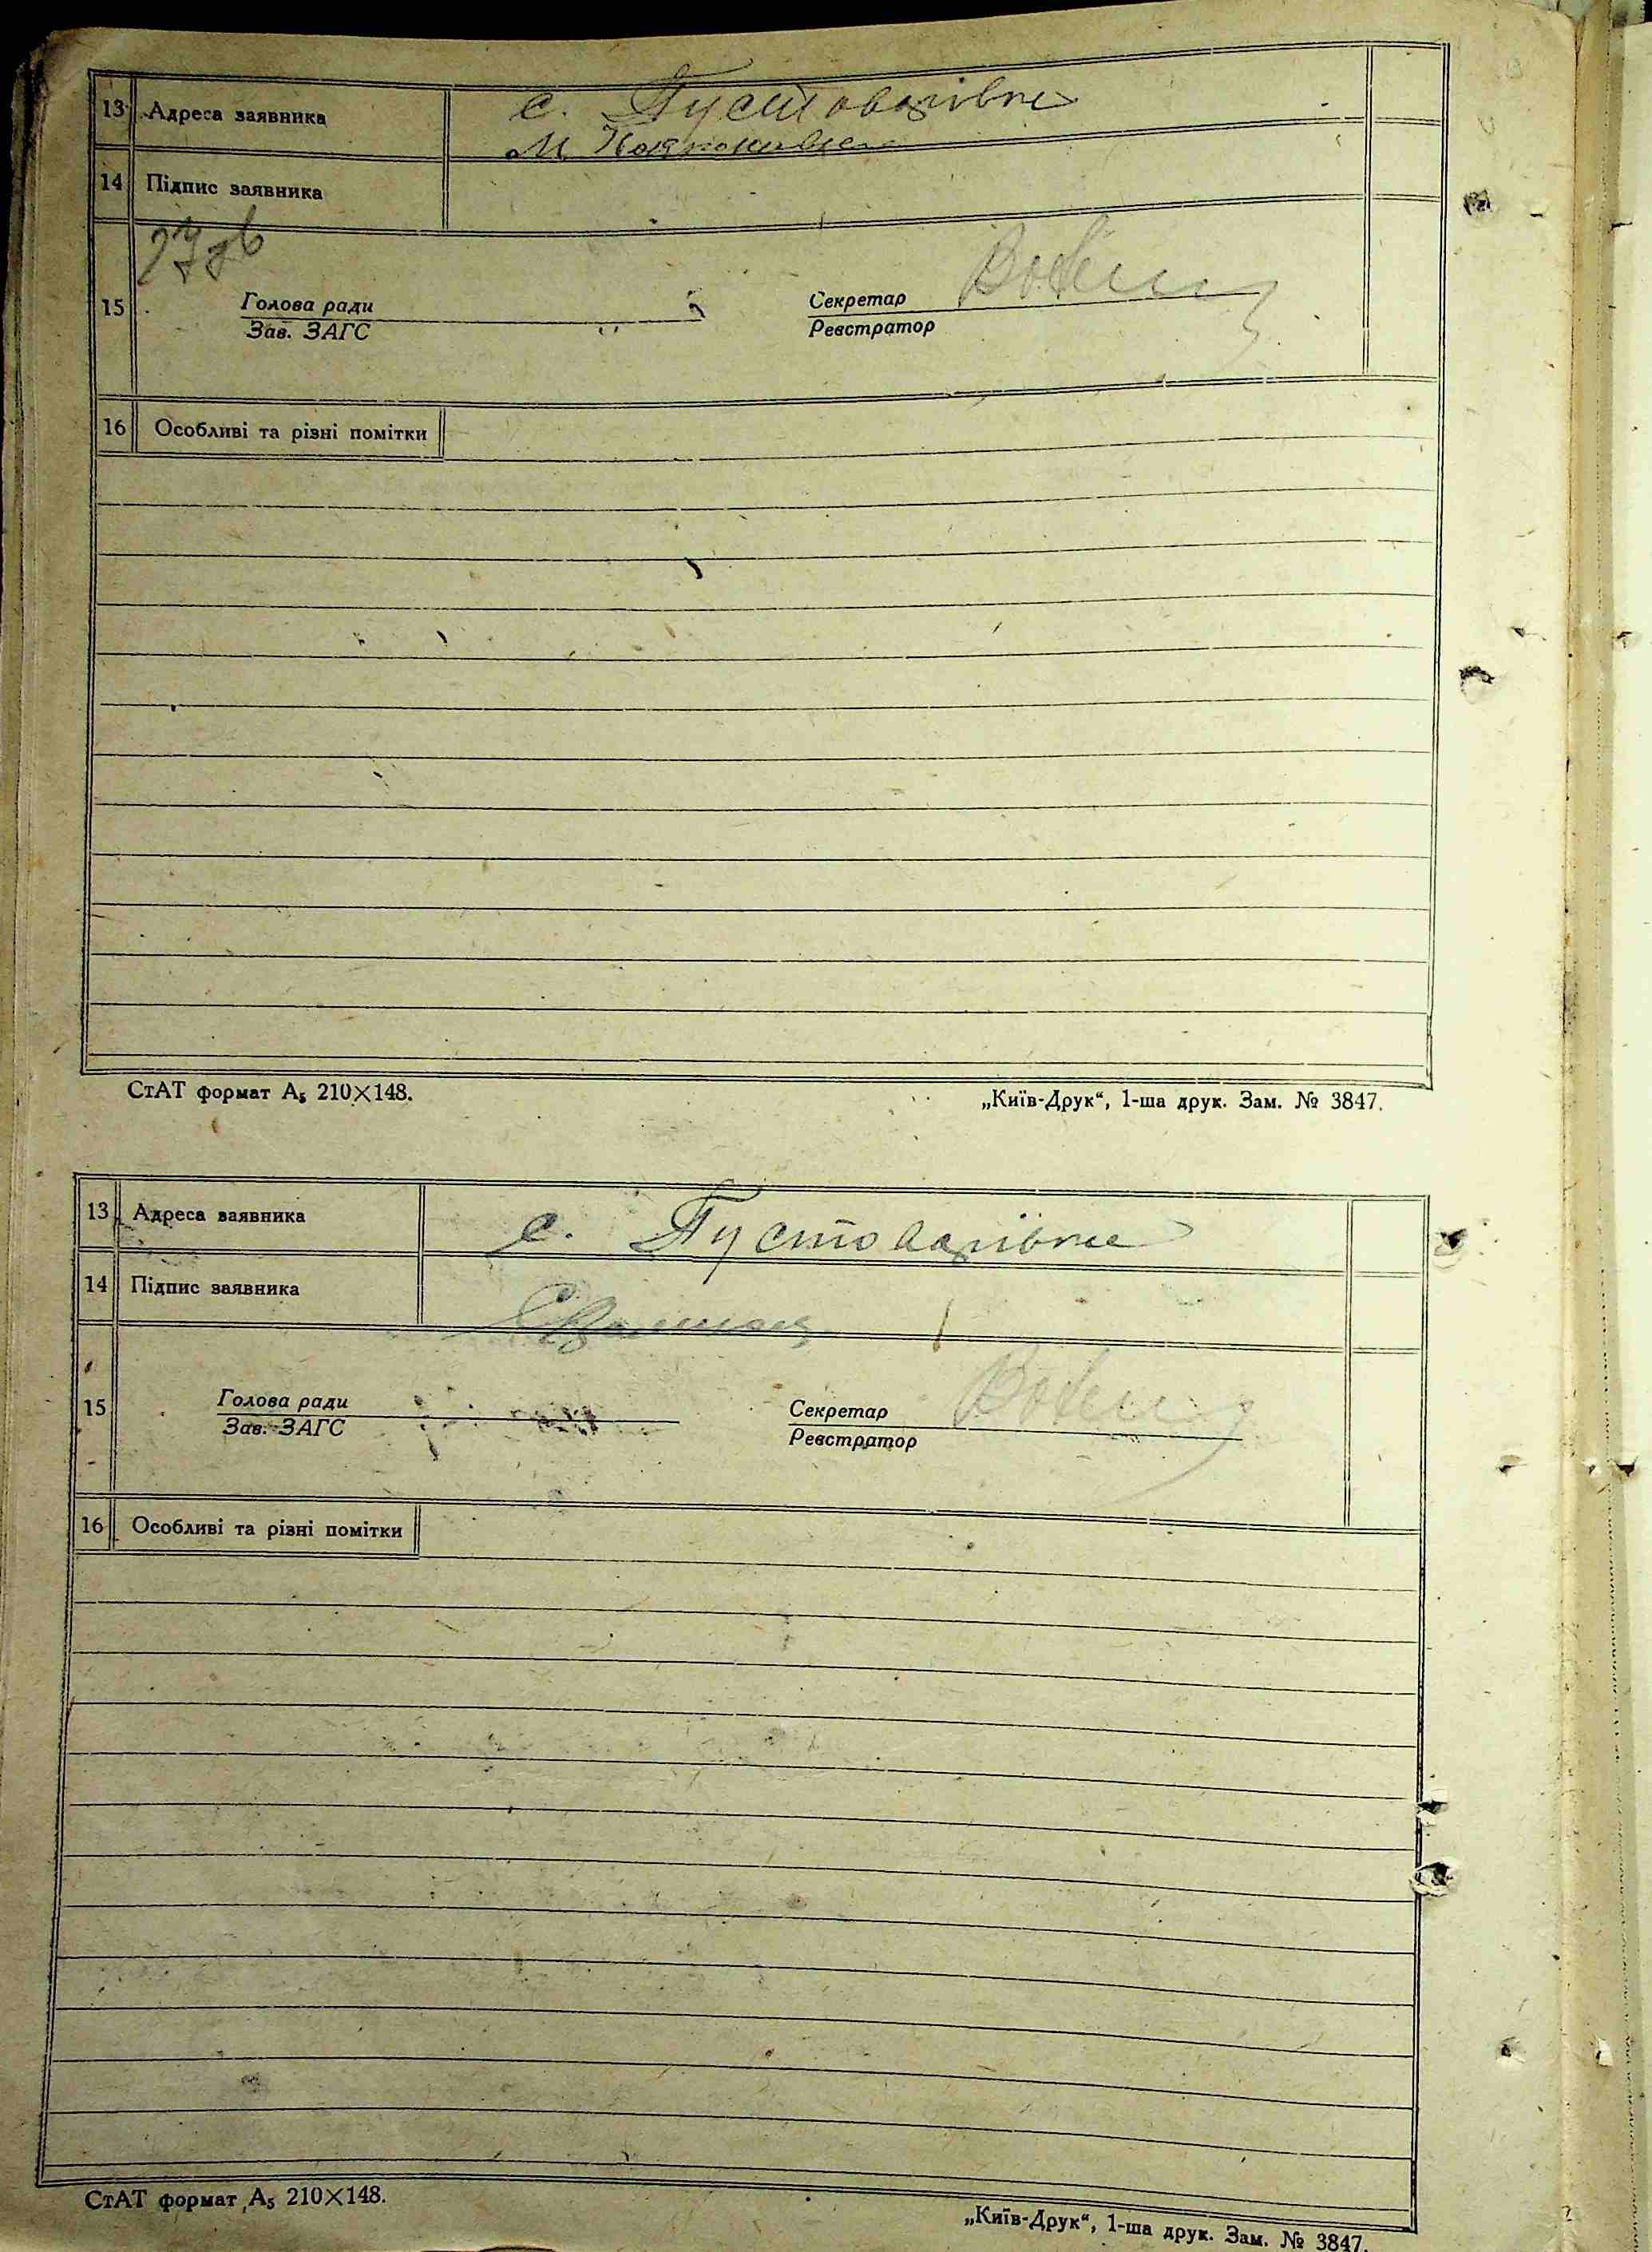 13 Адреса заявника с. Пустоварівка
14 Підпис заявника
15 Голова ради Секретар
Зав. ЗАГС Реєстратор
16 Особливі та різні помітки
СтАТ формат А₅ 210×148. „Київ-Друк“, 1-ша друк. Зам. № 3847.
13 Адреса заявника с. Пустоварівка
14 Підпис заявника
15 Голова ради Секретар
Зав. ЗАГС Реєстратор
16 Особливі та різні помітки
СтАТ формат А₅ 210×148. „Київ-Друк“, 1-ша друк. Зам. № 3847.